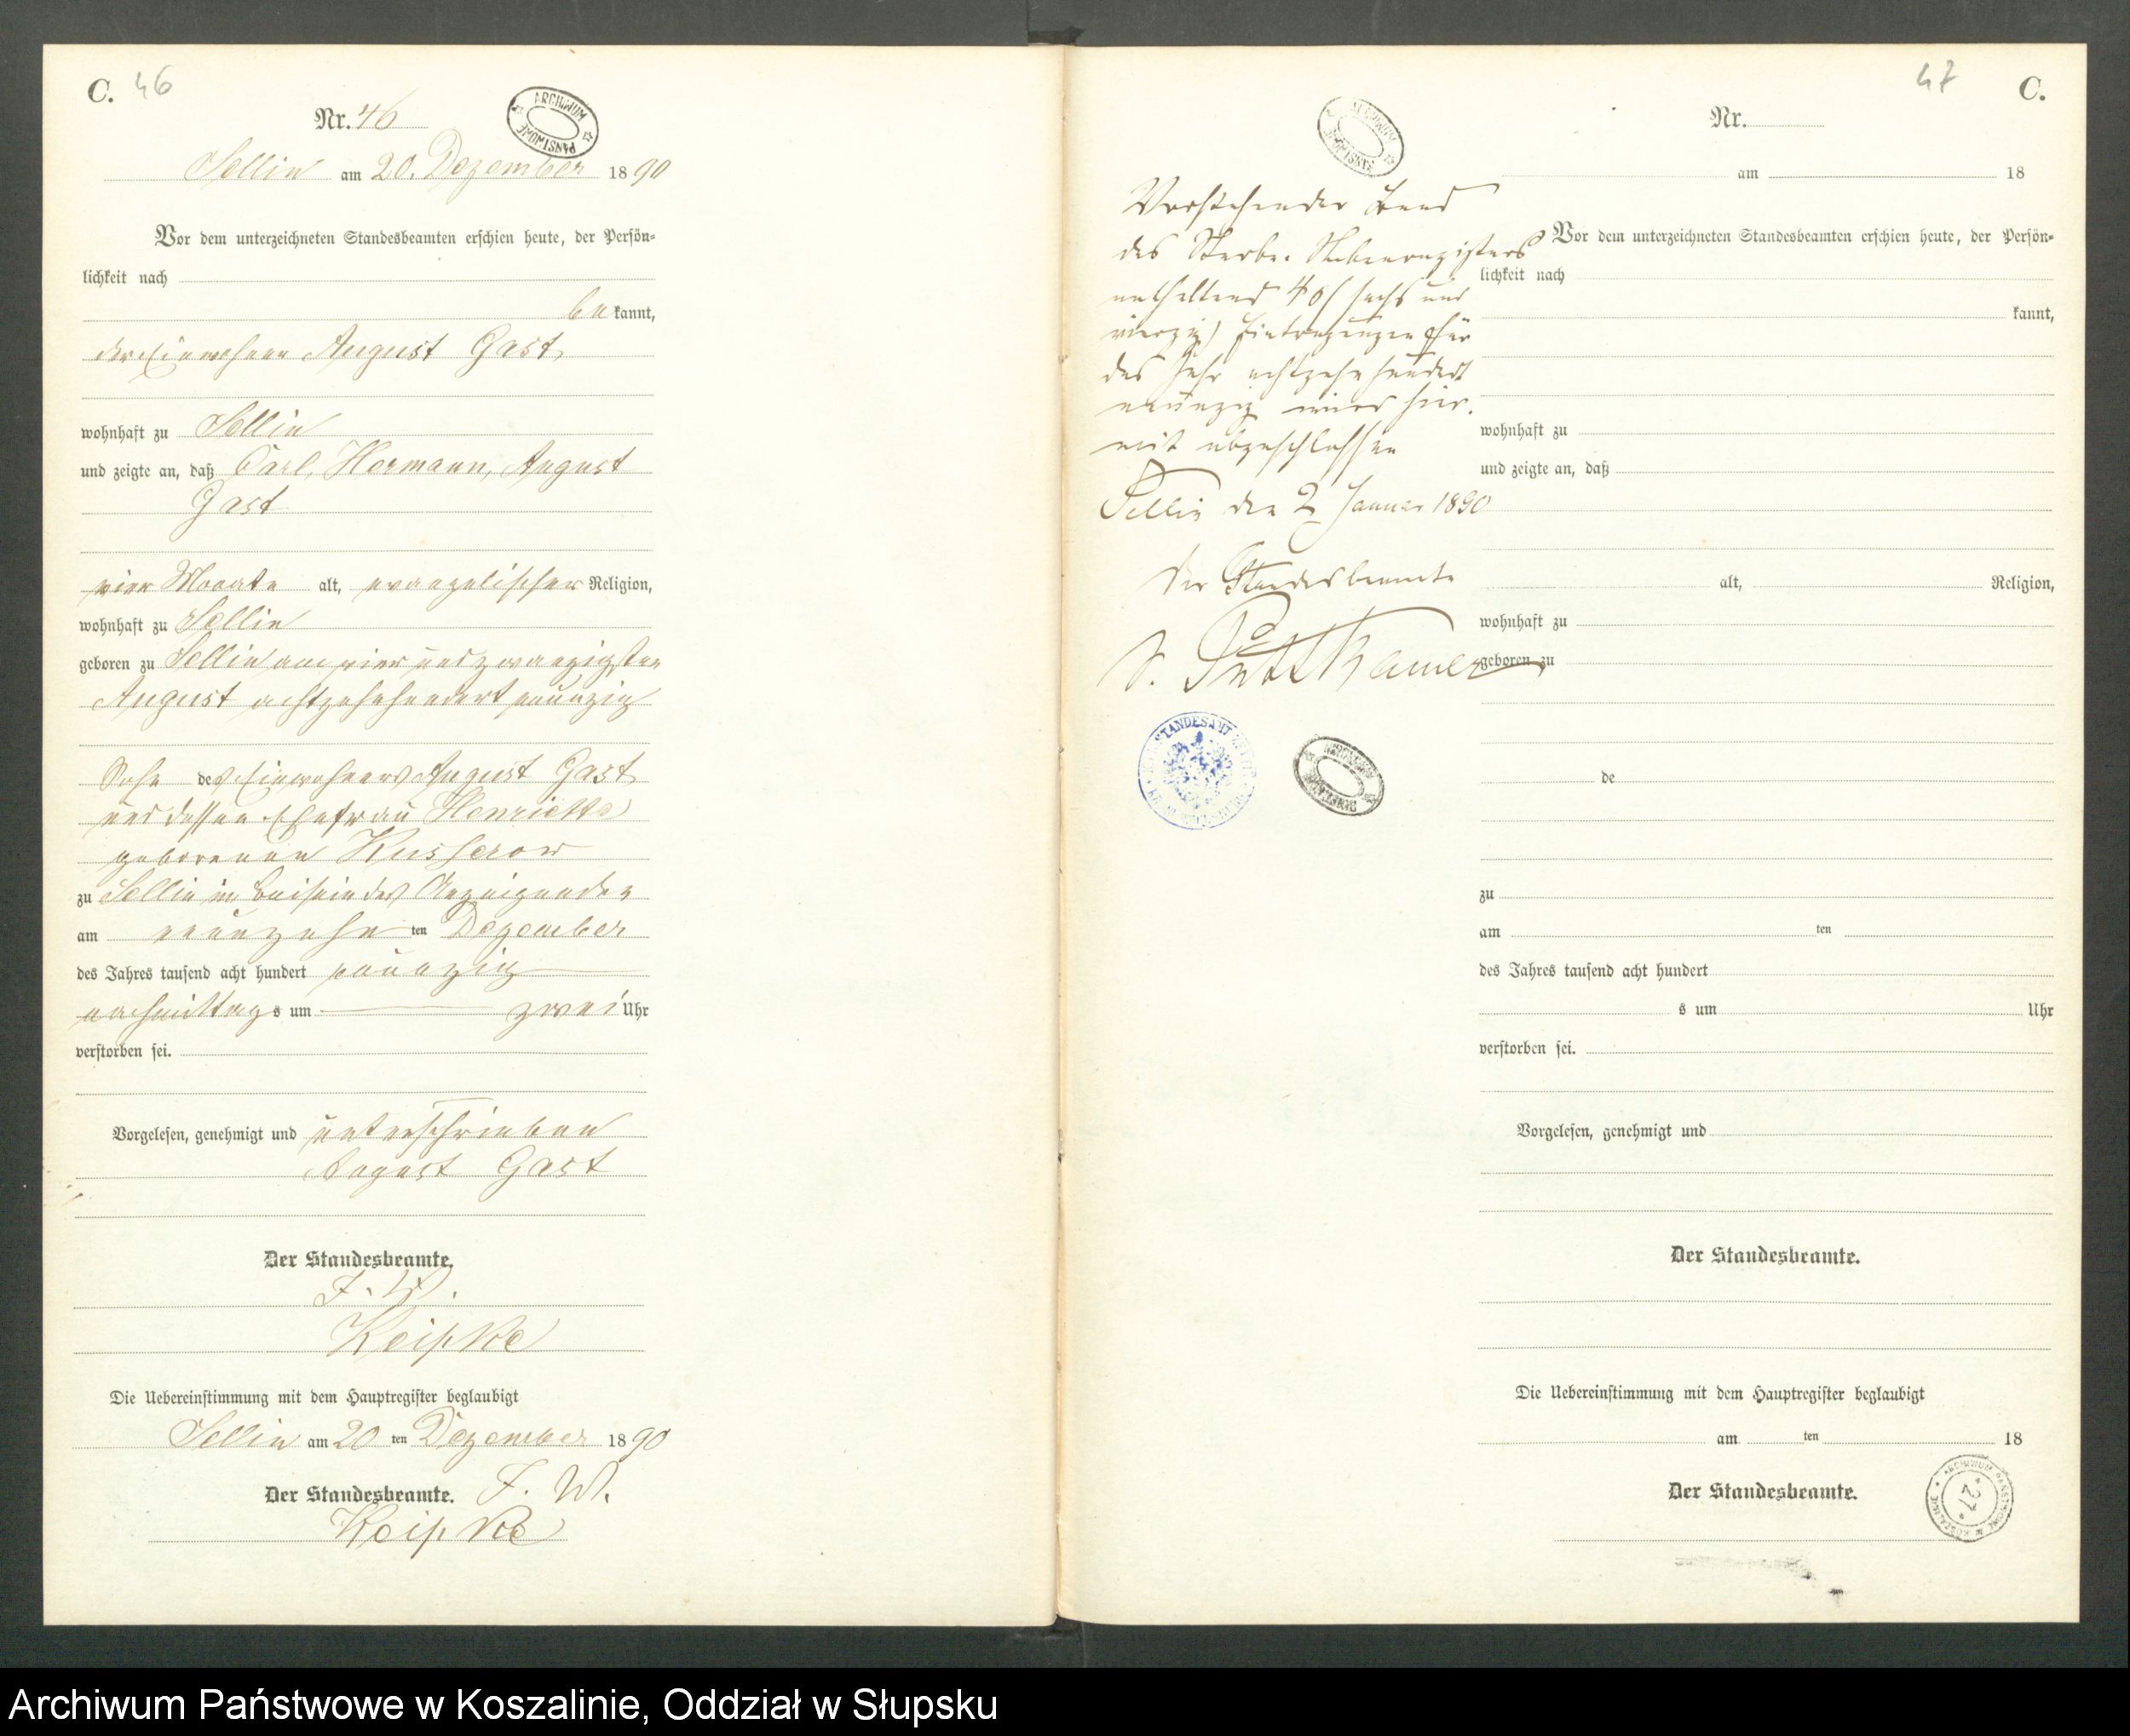 C. 46
Nr. 46
ARCHIWUM PAŃSTWOWE
Sellin am 20. Dezember 1890
Vor dem unterzeichneten Standesbeamten erschien heute, der Persön-
lichkeit nach
be kannt,
der Einwohner August Gast
wohnhaft zu Sellin
und zeigte an, daß Carl, Hermann, August
Gast
vier Monate alt, evangelischer Religion,
wohnhaft zu Sellin
geboren zu Sellin am vier und zwanzigsten
August achtzehnhundert neunzig
Sohn des Einwohners August Gast
und dessen Ehefrau Henriette
geborenen Kusserow
zu Sellin im Beisein des Anzeigenden
am neunzehn ten Dezember
des Jahres tausend acht hundert neunzig
nachmittags um zwei Uhr
verstorben sei.
Vorgelesen, genehmigt und unterschrieben
August Gast
Der Standesbeamte.
J. V.
Keipke
Die Uebereinstimmung mit dem Hauptregister beglaubigt
Sellin am 20 ten Dezember 1890
Der Standesbeamte. J. V.
Keipke
47 C.
Nr.
ARCHIWUM PAŃSTWOWE
am 18
Vorstehender Band
des Sterbe-Nebenregisters
enthaltend 46 (sechs und
vierzig) Eintragungen für
das Jahr achtzehnhundert
neunzig wird hier-
mit abgeschlossen
Sellin den 2 Januar 1890
Der Standesbeamte
v. Puttkamer
STANDESAMT
ARCHIWUM
Vor dem unterzeichneten Standesbeamten erschien heute, der Persön-
lichkeit nach
kannt,
wohnhaft zu
und zeigte an, daß
alt, Religion,
wohnhaft zu
geboren zu
de
zu
am ten
des Jahres tausend acht hundert
s um Uhr
verstorben sei.
Vorgelesen, genehmigt und
Der Standesbeamte.
Die Uebereinstimmung mit dem Hauptregister beglaubigt
am ten 18
Der Standesbeamte.
ARCHIWUM PAŃSTWOWE W KOSZALINIE
27
Archiwum Państwowe w Koszalinie, Oddział w Słupsku